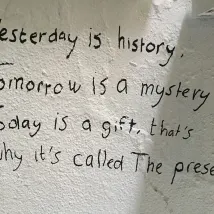 esterday is history.
omorrow is a mystery
oday is a gift, that's
hy it's called The prese